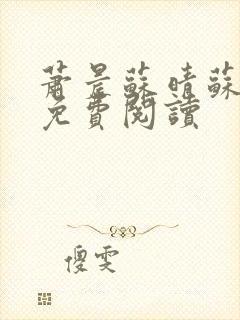 蕭晨蘇晴蘇
免費閱讀
傻雯